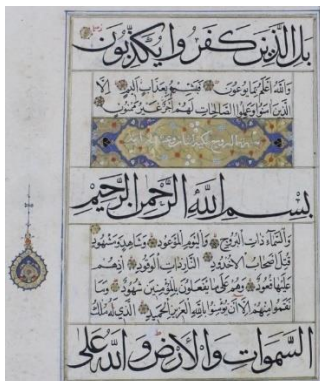 بل الذين كفروا يكذبون
والله أعلم بما يوعون فبشرهم بعذاب أليم إلا
الذين آمنوا وعملوا الصالحات لهم أجر غير ممنون
بسم الله الرحمن الرحيم
والسماء ذات البروج واليوم الموعود وشاهد ومشهود
قتل أصحاب الأخدود النار ذات الوقود إذ هم
عليها قعود وهم على ما يفعلون بالمؤمنين شهود وما
نقموا منهم إلا أن يؤمنوا بالله العزيز الحميد الذي له ملك
السموات والأرض والله على